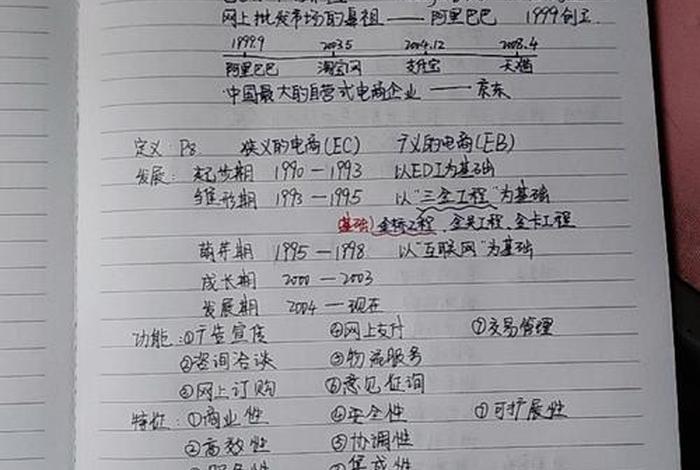 网上批发市场的鼻祖 —— 阿里巴巴 1999创立
1999.9 2003.5 2004.12 2008.4
阿里巴巴 淘宝网 支付宝 天猫
中国最大的自营式电商企业 —— 京东
定义:P8 狭义的电商(EC) 广义的电商(EB)
发展:起步期 1990—1993 以EDI为基础
雏形期 1993—1995 以"三金工程"为基础
(基础)金桥工程、金关工程、金卡工程
萌芽期 1995—1998 以"互联网"为基础
成长期 2000—2003
发展期 2004—现在
功能:①广告宣传 ④网上支付 ⑦交易管理
②咨询洽谈 ⑤物流服务
③网上订购 ⑥意见征询
特征:①商业性 ④安全性 ⑦可扩展性
②高效性 ⑤协调性
集成性